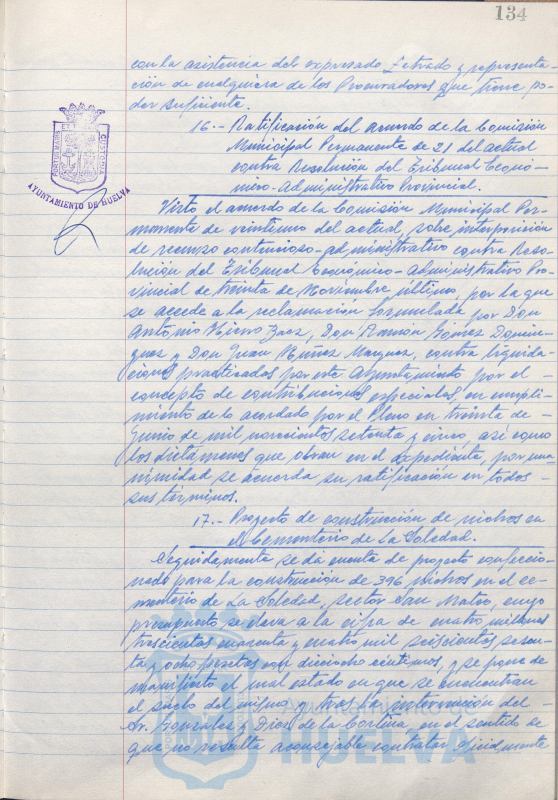 134
con la asistencia del expresado Letrado y representa-
ción de cualquiera de los Procuradores que tiene po-
der suficiente.
16.- Ratificación del acuerdo de la Comisión
Municipal Permanente de 21 del actual
contra Resolución del Tribunal Econó-
mico-Administrativo Provincial.
AYUNTAMIENTO DE HUELVA
Visto el acuerdo de la Comisión Municipal Per-
manente de veintiuno del actual, sobre interposición
de recurso contencioso-administrativo contra Reso-
lución del Tribunal Económico-Administrativo Pro-
vincial de treinta de Noviembre último, por la que
se accede a la reclamación formulada por Don
Antonio Hierro Don Ramón Gómez Domín-
guez y Don Juan Núñez Marquez, contra liquida-
ciones practicadas por este Ayuntamiento por el -
concepto de contribuciones especiales, en cumpli-
miento de lo acordado por el Pleno en treinta de -
Junio de mil novecientos setenta y cinco, así como
los dictámenes que obran en el expediente, por una-
nimidad se acuerda su ratificación en todos -
sus terminos.
17.- Proyecto de construcción de nichos en
el Cementerio de La Soledad.
Seguidamente se dá cuenta de proyecto confeccio-
nado para la construcción de 396 nichos en el ce-
menterio de La Soledad, sector San Mateo, cuyo
presupuesto se eleva a la cifra de cuatro millones
trescientas cuarenta y cuatro mil seiscientas sesen-
ta y ocho pesetas con dieciocho céntimos, y se pone de
manifiesto el mal estado en que se encuentran
el suelo del mismo y tras la intervención del -
Sr. González y Díaz de la Cortina, en el sentido de
que no resulta aconsejable contratar
HUELVA